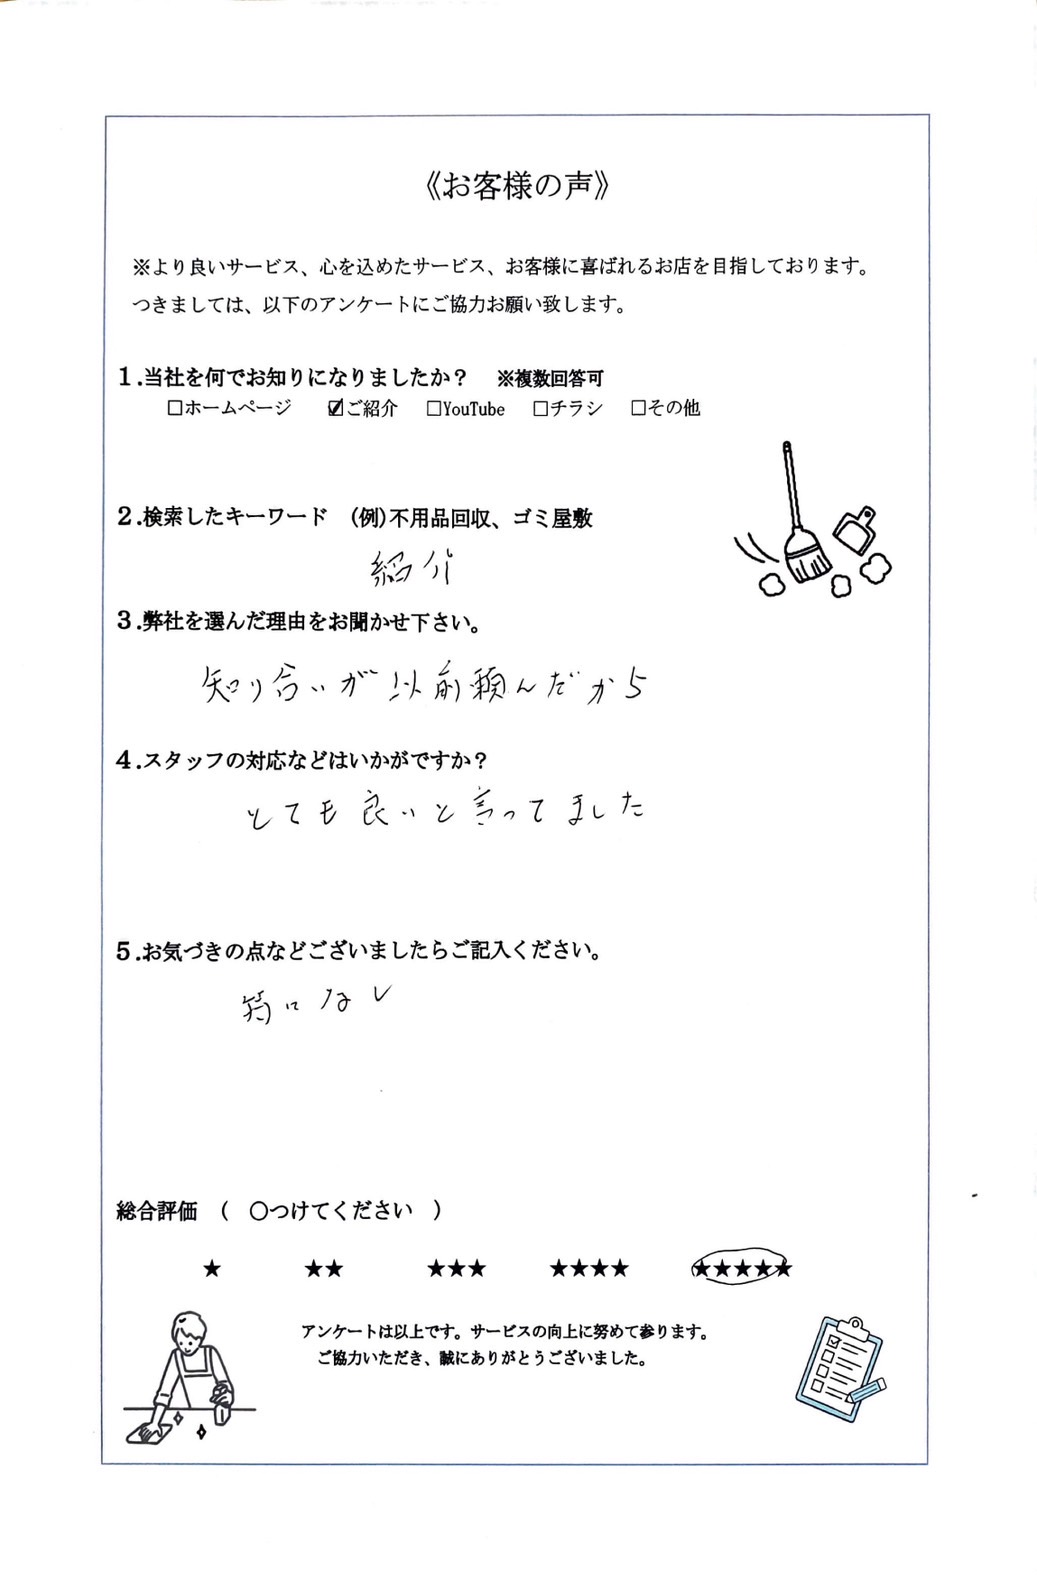 《お客様の声》
※より良いサービス、心を込めたサービス、お客様に喜ばれるお店を目指しております。
つきましては、以下のアンケートにご協力お願い致します。
1.当社を何でお知りになりましたか？　※複数回答可
☐ホームページ　☑ご紹介　☐YouTube　☐チラシ　☐その他
2.検索したキーワード　(例)不用品回収、ゴミ屋敷
紹介
3.弊社を選んだ理由をお聞かせ下さい。
知り合いが以前頼んだから
4.スタッフの対応などはいかがですか？
とても良いと言ってました
5.お気づきの点などございましたらご記入ください。
特になし
総合評価　(　〇つけてください　)
★　★★　★★★　★★★★　★★★★★
アンケートは以上です。サービスの向上に努めて参ります。
ご協力いただき、誠にありがとうございました。